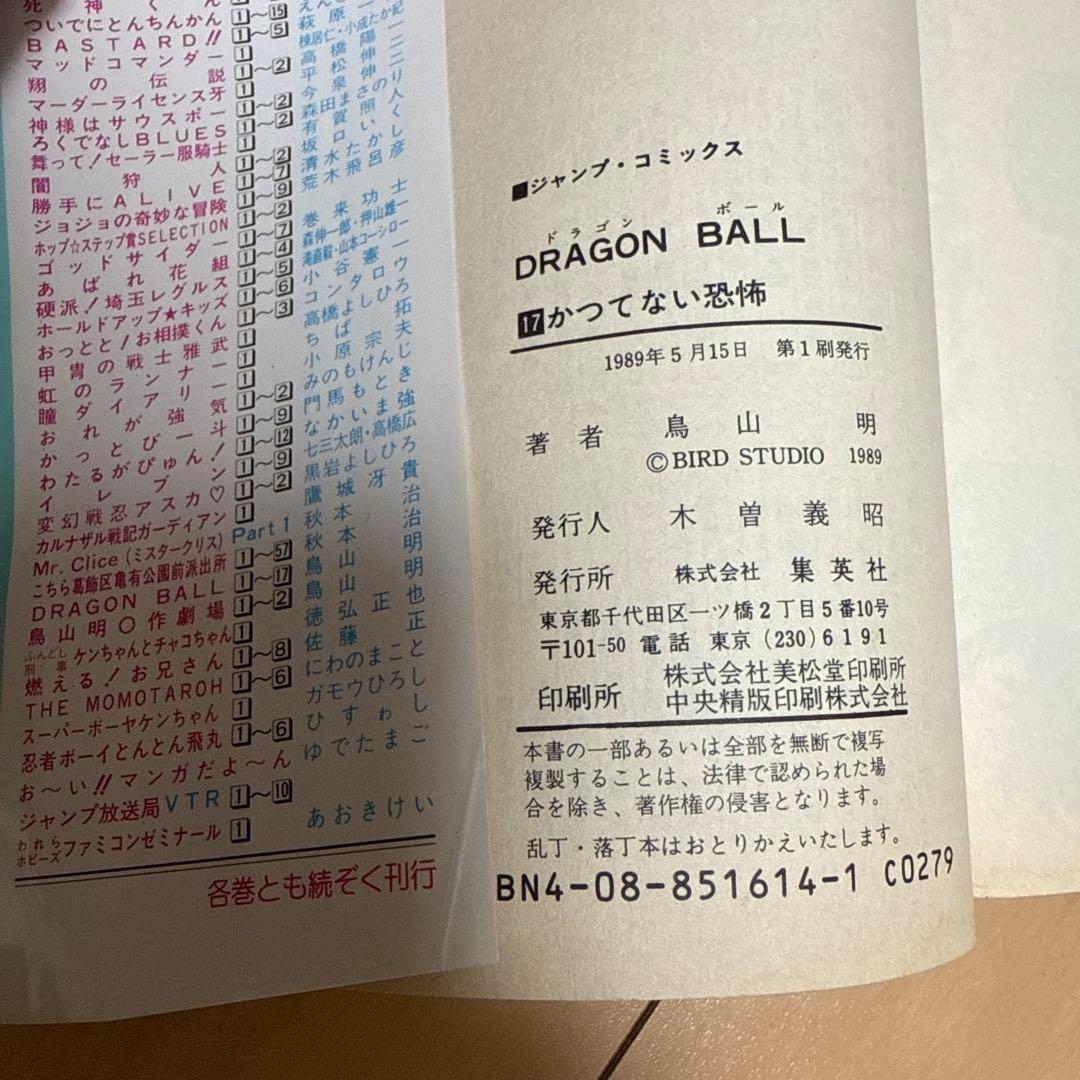 ついでにとんちんかん 1～15
BASTARD!! 1～5 萩原一
マッドコマンダー 1
翔の伝説 1～2 高橋陽
マーダーライセンス牙 1
神様はサウスポー 1～2 今泉伸二
ろくでなしBLUES 1～2 森田まさのり
舞って!セーラー服騎士 1 有賀照人
闇狩人 1～2 坂口いく
勝手にALIVE 1～7 清水たかし
ジョジョの奇妙な冒険 1～9 荒木飛呂彦
ホップ☆ステップ賞SELECTION 1～2
ゴッドサイダー 1～7 巻来功士
あばれ花組 1～4 森伸一郎・押山雄一
硬派!埼玉レグルス 1～5 滝直毅・山本コーシロー
ホールドアップ★キッズ 1～6 小谷憲一
おっとと!お相撲くん 1～3 コンタロウ
甲冑の戦士雅武 1 高橋よしひろ
虹のランナー 1 ちば拓
瞳ダイアリー 1 小原宗夫
おれが強気 1～2 みのもけんじ
かっとび一斗 1～9 門馬もとき
わたるがぴゅん! 1～12 なかいま強
イレブン 1～9 七三太朗・高橋広
変幻戦忍アスカ♡ 1～2 黒岩よしひろ
カルナザル戦記ガーディアン 1 鷹城冴貴
Mr. Clice (ミスタークリス) Part 1 秋本治
こちら葛飾区亀有公園前派出所 1～57 秋本治
DRAGON BALL 1～17 鳥山明
鳥山明〇作劇場 1～2 鳥山明
ふんどし刑事ケンちゃんとチャコちゃん 1 徳弘正也
燃える!お兄さん 1～8 佐藤正
THE MOMOTAROH 1～6 にわのまこと
スーパーボーヤケンちゃん 1 ガモウひろし
忍者ボーイとんとん飛丸 1～6 ひすゎし
お～い!!マンガだよ～ん ゆでたまご
ジャンプ放送局VTR 1～10
われらホビーズファミコンゼミナール 1 あおきけい
各巻とも続ぞく刊行
■ジャンプ・コミックス
ドラゴン ボール
DRAGON BALL
17かつてない恐怖
1989年5月15日 第1刷発行
著者 鳥山 明
©BIRD STUDIO 1989
発行人 木曽義昭
発行所 株式会社 集英社
東京都千代田区一ツ橋2丁目5番10号
〒101-50 電話 東京 (230) 6191
印刷所 株式会社美松堂印刷所
中央精版印刷株式会社
本書の一部あるいは全部を無断で複写
複製することは、法律で認められた場
合を除き、著作権の侵害となります。
乱丁・落丁本はおとりかえいたします。
BN4-08-851614-1 C0279